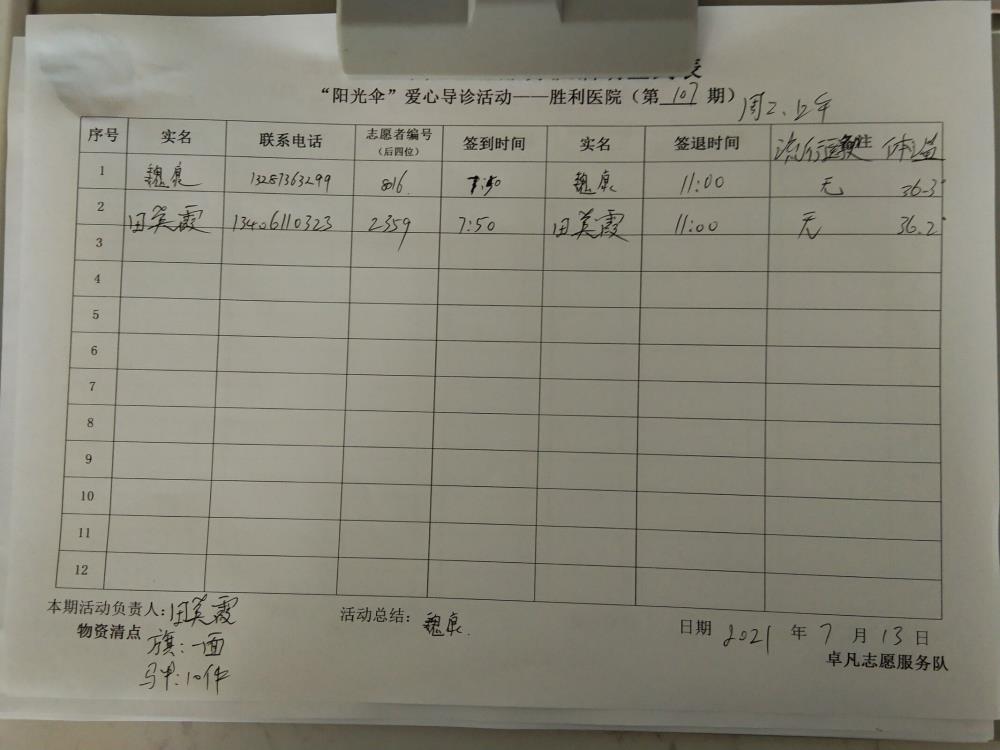 “阳光伞”爱心导诊活动——胜利医院（第 107 期）周2.上午
序号 实名 联系电话 志愿者编号（后四位） 签到时间 实名 签退时间 备注 体温
1 魏泉 13287363299 8016 7:50 魏泉 11:00 无 36.3°
2 田英霞 13406110323 2359 7:50 田英霞 11:00 无 36.2°
3
4
5
6
7
8
9
10
11
12
本期活动负责人：田英霞 活动总结：魏泉 日期 2021 年 7 月 13 日
物资清点 旗：一面 卓凡志愿服务队
马甲：10件